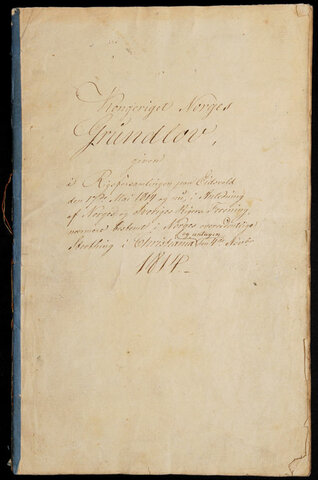 Kongeriget Norges
Grundlov,
given
i Rigsforsamlingen paa Eidsvold
den 17de Mai 1814 og nu, i Anledning
af Norges og Sveriges Rigers Forening,
nærmere bestemt i Norges overordentlige
Storthing i Christiania og antagen den 4de Novbr
1814